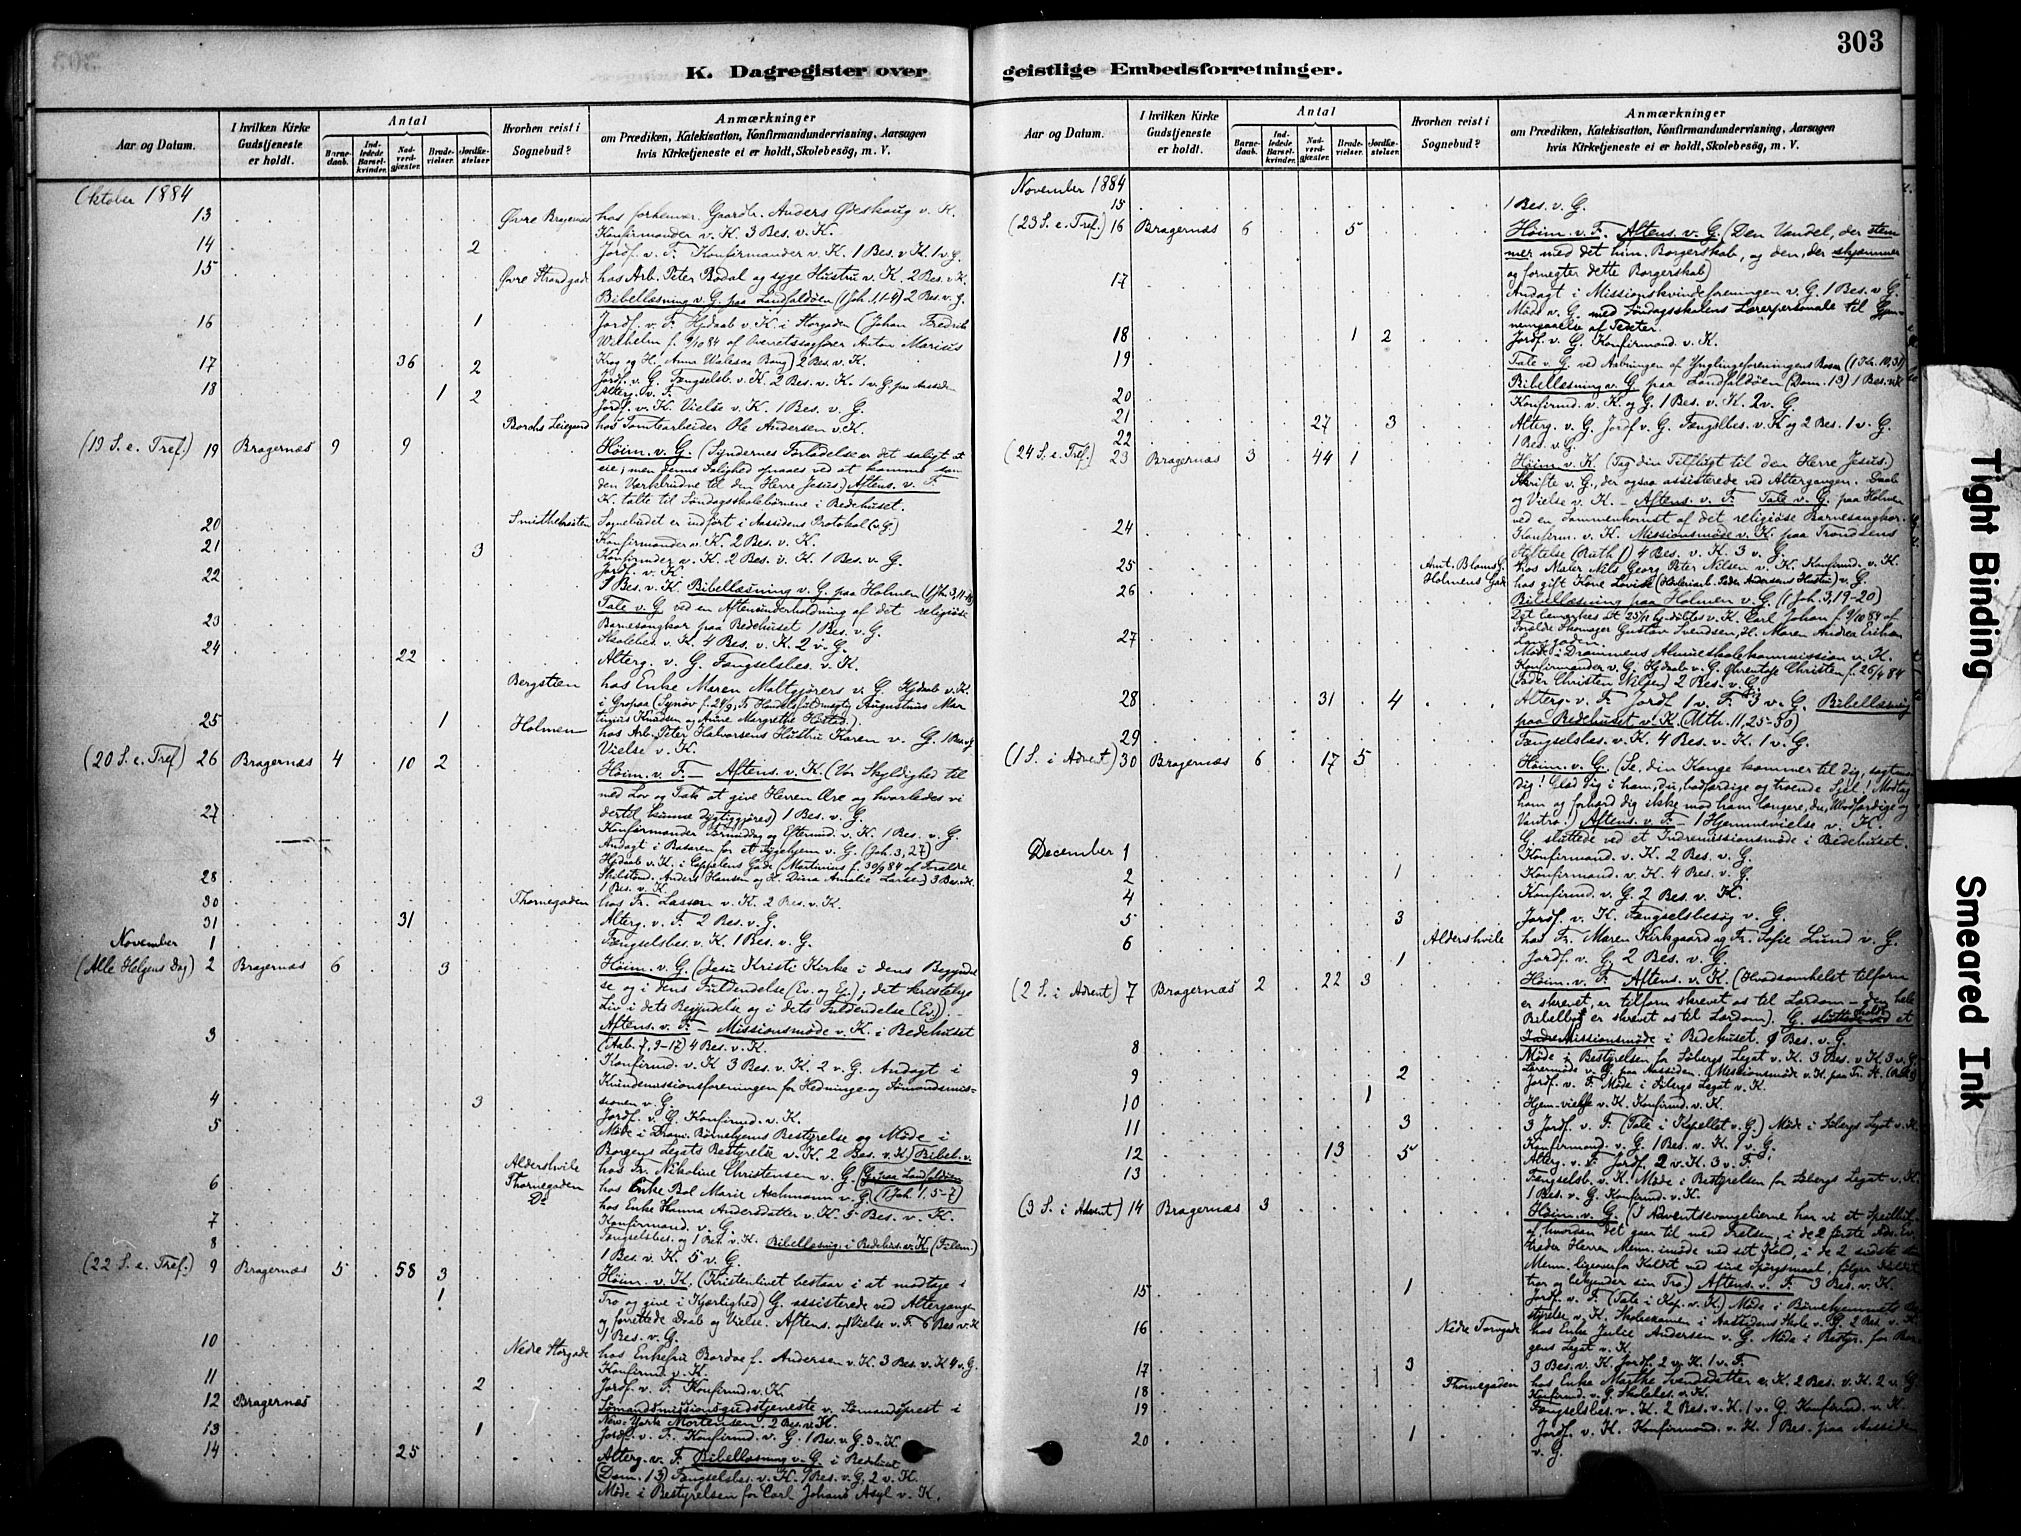 303
K. Dagregister over
geistlige Embedsforretninger.
Aar og Datum.
I hvilken Kirke Gudstjeneste er holdt.
Antal
Barnedaab.
Indledede Barselkvinder.
Nadverdgjæster.
Brudevielser.
Jordfæstelser.
Hvorhen reist i Sognebud?
Anmærkninger
om Prædiken, Katekisation, Konfirmandundervisning, Aarsagen
hvis Kirketjeneste ei er holdt, Skolebesøg, m. V.
Oktober 1884
13 Øvre Bragernæs hos forhenvær. Gaardbr. Anders Ødeskaug v. K.
Konfirmander v. K. 3 Bes. v. K.
14 2 Jordf. v. F. Konfirmander v. K. 1 Bes. v. K. 1 v. G.
15 Øvre Strandgade hos Arb. Peter Bodal og syge Hustru v. K. 2 Bes. v. K.
Bibellæsning v. G. paa Landfaldøen (1 Joh. 1,1-4) 2 Bes. v. G.
16 1 Jordf. v. F. Hjdaab v. K. i Storgaden (Johan Fredrik
Wilhelm f. 9/10 84 af Overretssagfører Anton Marius
17 36 2 Krog og H. Anna Bong) 2 Bes. v. K.
Jordf. v. G. Fængselsb. v. K. 2 Bes. v. K. 1 v. G. paa Aassiden
18 1 2 Alterg. v. F.
Jordf. v. K. Vielse v. K. 1 Bes. v. G.
Borchs Leiegaard hos Tomtearbeider Ole Andersen v. K.
(19 S. e. Tref.) 19 Bragernæs 9 9 Høim. v. G. (Syndernes Forladelse er det saligt at
eie; men denne Salighed opnaaes ved at komme som
den Værkbrudne til den Herre Jesus.) Aftens. v. F.
K. talte til Søndagsskolebørnene i Bedehuset.
20 Sognebudet er indført i Aassidens Protokol (v. G)
Konfirmander v. K. 2 Bes. v. K.
21 3 Konfirmander v. K. 2 Bes. v. K. 1 Bes. v. G.
Jordf. v. K.
22 1 Bes. v. K. Bibellæsning v. G. paa Holmen
Tale v. G. ved en Aftenunderholdning af det religiøse
23 Barnesangkor paa Bedehuset 1 Bes. v. G.
Skolebes. v. K. 4 Bes. v. K. 2 v. G.
24 22 Alterg. v. G. Fængselsbes. v. K.
Bergstien hos Enke Maren Maltgjørers v. G. Hjdaab v. K.
25 1 Holmen hos Arb. Peter Halvorsens Hustru Karen v. G. 1 Bes. v. G
Vielse v. K.
(20 S. e. Tref.) 26 Bragernæs 4 10 2 Høim. v. F. – Aftens. v. K. (Vor Skyldighed til
med Lov og Tak at give Herren Ære og hvorledes vi
27 dertil kunne dygtiggjøres) 1 Bes. v. G.
Konfirmander Formiddag og Eftermd. v. K. 1 Bes. v. G.
Andagt i Basaren for et Sygehjem v. G. (Joh. 3, 27)
Hjdaab v. K. i Cappelens Gade (Martinius f. 30/9 84 af Forældre
28 Anders Hansen og H. Dina Amalie Larsen) 3 Bes. v. K.
1 Bes. v. K.
30 Thornegaden hos Fr. Lasson v. K. 2 Bes. v. K.
31 31 Alterg. v. F. 2 Bes. v. G.
November 1 Fængselsbes. v. K. 1 Bes. v. G.
(Alle Helgens Dag) 2 Bragernæs 6 3 Høim. v. G. (Jesu Kristi Kirke i dens Begyndel
se og i dens Fuldendelse (Ev. og Ep.); det kristelige
Liv i dets Begyndelse og i dets Fuldendelse (Ev.)).
3 Aftens. v. F. – Missionsmøde v. K. i Bedehuset
(Aab. 7, 9-17) 4 Bes. v. K.
Konfirmand. v. K 3 Bes. v. K. 2 v. G. Andagt i
Kvindemissionsforeningen for Hedninge og Sømandsmis-
4 3 sionen v. G.
Jordf. v. G. Konfirmd. v. K.
5 Møde i Dram. Børnehjems Bestyrelse og Møde i
Borgens Legats Bestyrelse v. K. 2 Bes. v. K.) Bibel. v.
Aldershvile hos Fr. Nikoline Christensen v. G. (G. paa Landfaldøen
6 Thornegaden hos Enke Bol Marie Aschmann v. G. (1 Joh. 1, 5-7)
Do hos Enke Hanna Andersdatter v. K. 5 Bes. v. K.
7 Konfirmand. v. G.
Fængselsbes. og 1 Bes. v. K. Bibellæsning i Bedehus. v. K. (Filem.)
8 1 Bes. v. K. 5 v. G.
(22 S. e. Tref.) 9 Bragernæs 5 58 3 Høim. v. K. (Kristenlivet bestaar i at modtage i
1 Tro og give i Kjærlighed) G. assisterede ved Altergangen
og forrettede Daab og Vielse. Aftens. og Vielse v. F. 6 Bes. v. K
10 1 Bes. v. G.
Nedre Storgade hos Enkefru Bordoe f. Andersen v. K. 3 Bes. v. K. 4 v. G.
11 Konfirmd. v. K.
2 Jordf. v. F. Konfirmd. v. K.
12 Bragernæs Sømandsmissionsgudstjeneste v. Sømandsprest i
New-York Mortensen. 2 Bes. v. K.
13 1 Jordf. v. F. Konfirmd. v. G. 1 Bes. v. G. 3 v. K.
14 25 Alterg. v. F. Bibellæsning v. G. i Bedehuset
(Dom. 13) Fængselsbes. v. K. 1 Bes. v. G. 2 v. K.
Møde i Bestyrelsen for Carl Johans Asyl v. K.
Aar og Datum.
I hvilken Kirke Gudstjeneste er holdt.
Antal
Barnedaab.
Indledede Barselkvinder.
Nadverdgjæster.
Brudevielser.
Jordfæstelser.
Hvorhen reist i Sognebud?
Anmærkninger
om Prædiken, Katekisation, Konfirmandundervisning, Aarsagen
hvis Kirketjeneste ei er holdt, Skolebesøg, m. V.
November 1884
15 1 Bes. v. G.
(23 S. e. Tref.) 16 Bragernæs 6 5 Høim. v. F. Aftens. v. G. (Den Vandel, der stem
mer med det him. Borgerskab, og den, der skjæmmer
17 og fornegter dette Borgerskab)
Andagt i Missionskvindeforeningen v. G. 1 Bes. v. G.
Møde v. G. med Søndagsskolens Lærerpersonale til Gjen-
18 1 2 nemgaaelse af Texter.
Jordf. v. G. Konfirmand. v. K.
19 Tale v. G. ved Aabningen af Ynglingeforeningens Basar (1 Kor. 10, 31)
Bibellæsning v. G. paa Landfaldøen (Dom. 13) 1 Bes. v. K
20 Konfirmd. v. K. og G. 1 Bes. v. K. 2 v. G.
21 27 3 Alterg. v. G. Jordf. v. G. Fængslbes. v. K og 2 Bes. 1 v. G.
22 1 Bes. v. G.
(24 S. e. Tref.) 23 Bragernæs 3 44 1 Høim. v. K. (Tag din Tilflugt til den Herre Jesus.)
Skrifte v. G., der ogsaa assisterede ved Altergangen. Daab
og Vielse v. K. – Aftens. v. F. Tale v. G. paa Holmen
24 ved en Sammenkomst af det religiøse Barnesangkor.
Konfirm. v. K. Missionsmøde v. K. paa Trondsens
Aftelse (Ruth 1) 4 Bes. v. K. 3 v. G.
25 Amt. Bloms G. hos Maler Nils Georg Peter Nilsen v. K. Konfirmd. v. K.
Holmens Gade hos gift Kone Lovise (Peder Andersens Hustru) v. G.
26 Bibellæsning paa Holmen v. G. (1 Joh. 3, 19-20)
Det bemærkes at 25/11 hj.døbtes v. K. Carl Johan f. 9/10 84 af
27 Foræld. Skomager Gustav Svendsen, H. Maren Andrea Eriksen
Langgaden
Møde i Drammens Almueskolekommission v. K.
Konfirmander v. G. Hjdaab v. G. Christen f. 26/4 84
(Fader Christen Nilsen) 2 Bes. v. G.
28 31 4 Alterg. v. F. Jordf. 1 v. F. 3 v. G. Bibellæsning
paa Bedehuset v. K. (Mth. 11, 25-30)
29 Fængselsbes. v. K. 4 Bes. v. K. 1 v. G.
(1 S. i Advent) 30 Bragernæs 6 17 5 Høim. v. G. (Se, din Konge kommer til dig, sagtmo-
dig! Glæd dig i ham, du, bodfærdige og troende Sjel! Modtag
ham og forhærd dig ikke mod ham længere, du, Ubodfærdige og
Vantro!) Aftens. v. F. 1 Hjemmevielse v. K.
G. sluttede ved et Indremissionsmøde i Bedehuset.
December 1 Konfirmand. v. K. 2 Bes. v. G.
2 1 Konfirmand. v. K. 4 Bes. v. G.
4 Konfirmd. v. G. 2 Bes. v. K.
5 3 Jordf. v. K. Fængselsbesøg v. G.
6 Aldershvile hos Fr. Maren Kirkgaard og Fr. Sofie Lund v. G.
1 Jordf. v. G. 2 Bes. v. G.
(2 S. i Advent) 7 Bragernæs 2 22 3 Høim. v. F. Aftens. v. K. (Hvadsomhelst tilforn
er skrevet, er tilforn skrevet os til Lærdom – den hele
Bibelbog er skrevet os til Lærdom). G. sluttede ved et
IndreMissionsmøde i Bedehuset. 1 Bes. v. G.
8 Møde i Bestyrelsen for Søbergs Legat v. K. 3 Bes. v. K. 3 v. G.
Læsemøde v. G. paa Aassiden. (Missionsmøde v. K. paa Tr. A.
9 2 Jordf. v. F. Møde i Søbergs Legat v. K.
10 1 Hjem-vielse v. K. Konfirmd. v. K.
11 3 3 Jordf. v. F. (Tale i Kapellet v. G.) Møde i Søbergs Legat v. K.
Konfirmand. v. G. 1 Bes. v. K. 1 v. G.
12 13 5 Alterg. v. F. Jordf. 2 v. K. 3 v. F.
13 Fængselsb. v. K. Møde i Bestyrelsen for Søbergs Legat v. K.
1 Bes. v. G. Konfirmd. v. K.
(3 S. i Advent) 14 Bragernæs 3 Høim. v. G. (I Adventsevangelierne har vi et Speilbil-
af, hvordan det gaar til med Frelsen, i de 2 første Adv. Ev.
træder Herren Menn. imøde med sit Kald, i de 2 sidste
Menn. ligeoverfor Kaldet med sine Spørgsmaal, følger Kaldet
tror og bekjender sin Tro) Aftens. v. F. 3 Bes. v. K.
15 1 Jordf. v. F. (Tale i Kap. v. K.) Møde i Børnehjemmets Be
styrelse v. K. Skoleexamen i Aassidens Skole v. G. 2 Bes. v. K.
16 Nedre Torvgade hos Enke Julie Andersen v. G. Møde i Bestyr. for Bor
gens Legat v. K.
17 3 3 Bes. v. K. Jordf. 2 v. K. 1 v. F.
Thornegaden hos Enke Marthe Svendsdatter v. K. 2 Bes. v. K. 2 v. G
18 Konfirmd. v. G. Skolebes. v. K.
19 Fængselsbes. v. K. 2 Bes. v. K. 1 v. G. Konfirmd. v. K.
20 1 Jordf. v. K. Konfirmand. v. K. 1 Bes. paa Aasside
v. G.
Tight Binding
Smeared Ink